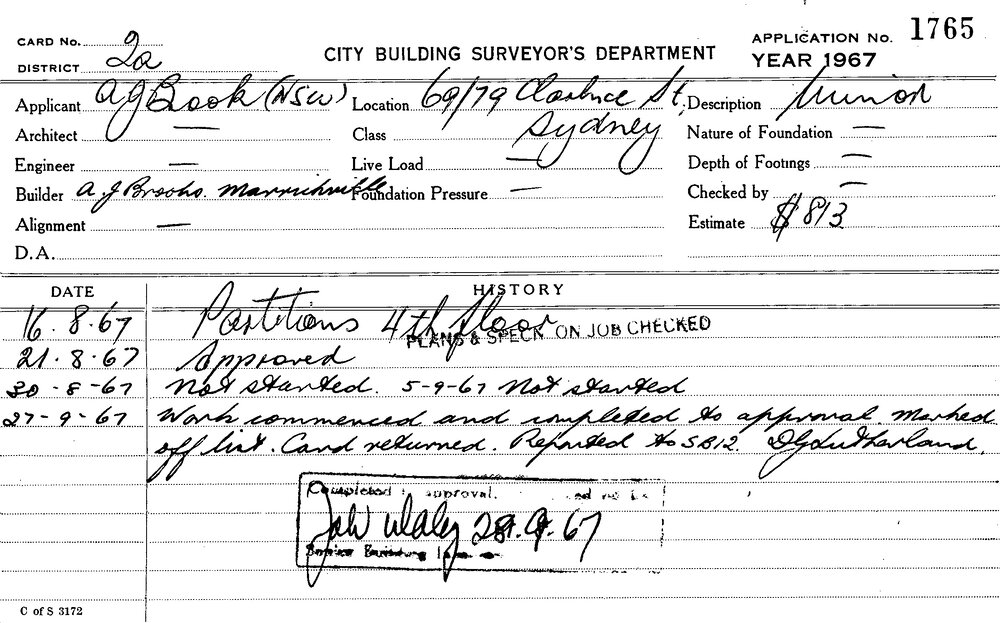 CARD No. 2a
DISTRICT
CITY BUILDING SURVEYOR'S DEPARTMENT
APPLICATION No. 1765
YEAR 1967
Applicant A J Brook (NSW) Location 69/79 Clarence St, Sydney Description Minor
Architect — Class Nature of Foundation —
Engineer — Live Load — Depth of Footings —
Builder A J Brooks. Marrickville Foundation Pressure — Checked by —
Alignment — Estimate $813
D.A.
DATE HISTORY
16.8.67 Partitions 4th floor
PLANS & SPECN ON JOB CHECKED
21.8.67 Approved
30-8-67 Not started. 5-9-67 Not started
27-9-67 Work commenced and completed to approval. Marked
off list. Card returned. Reported to SB12. DG Sutherland.
Completed approval.
28.9.67
Building
C of S 3172